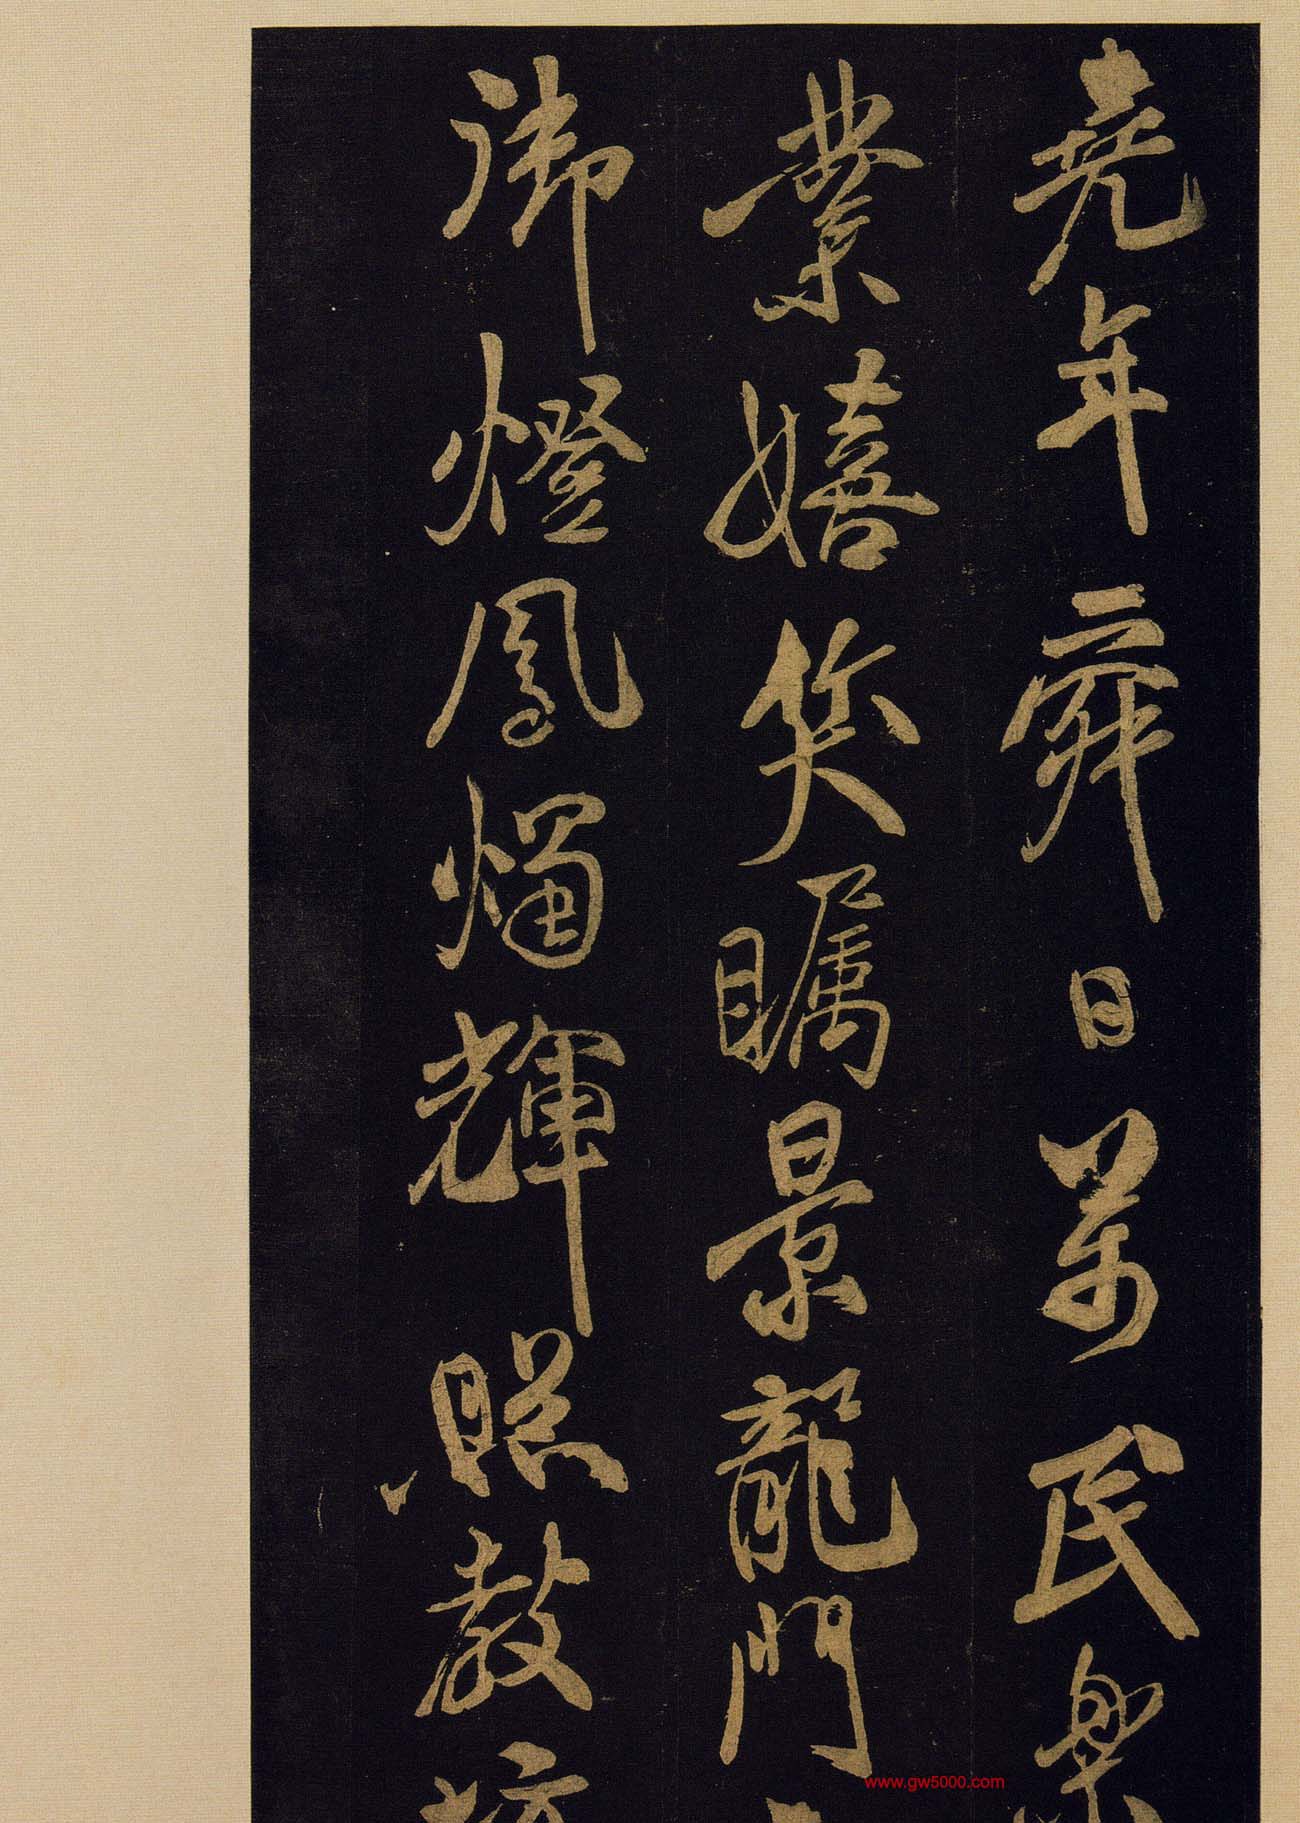 堯年舜日萬民樂
業嬉笑矚景龍門
御燈鳳燭輝照教坊
www.gw5000.com